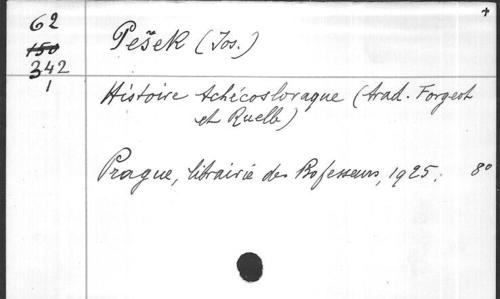 62
150
342
1
Pešek (Jos.)
Histoire tchécoslovaque (trad. Forgeot
et Ruelle)
Prague, librairie des Professeurs, 1925. 8°